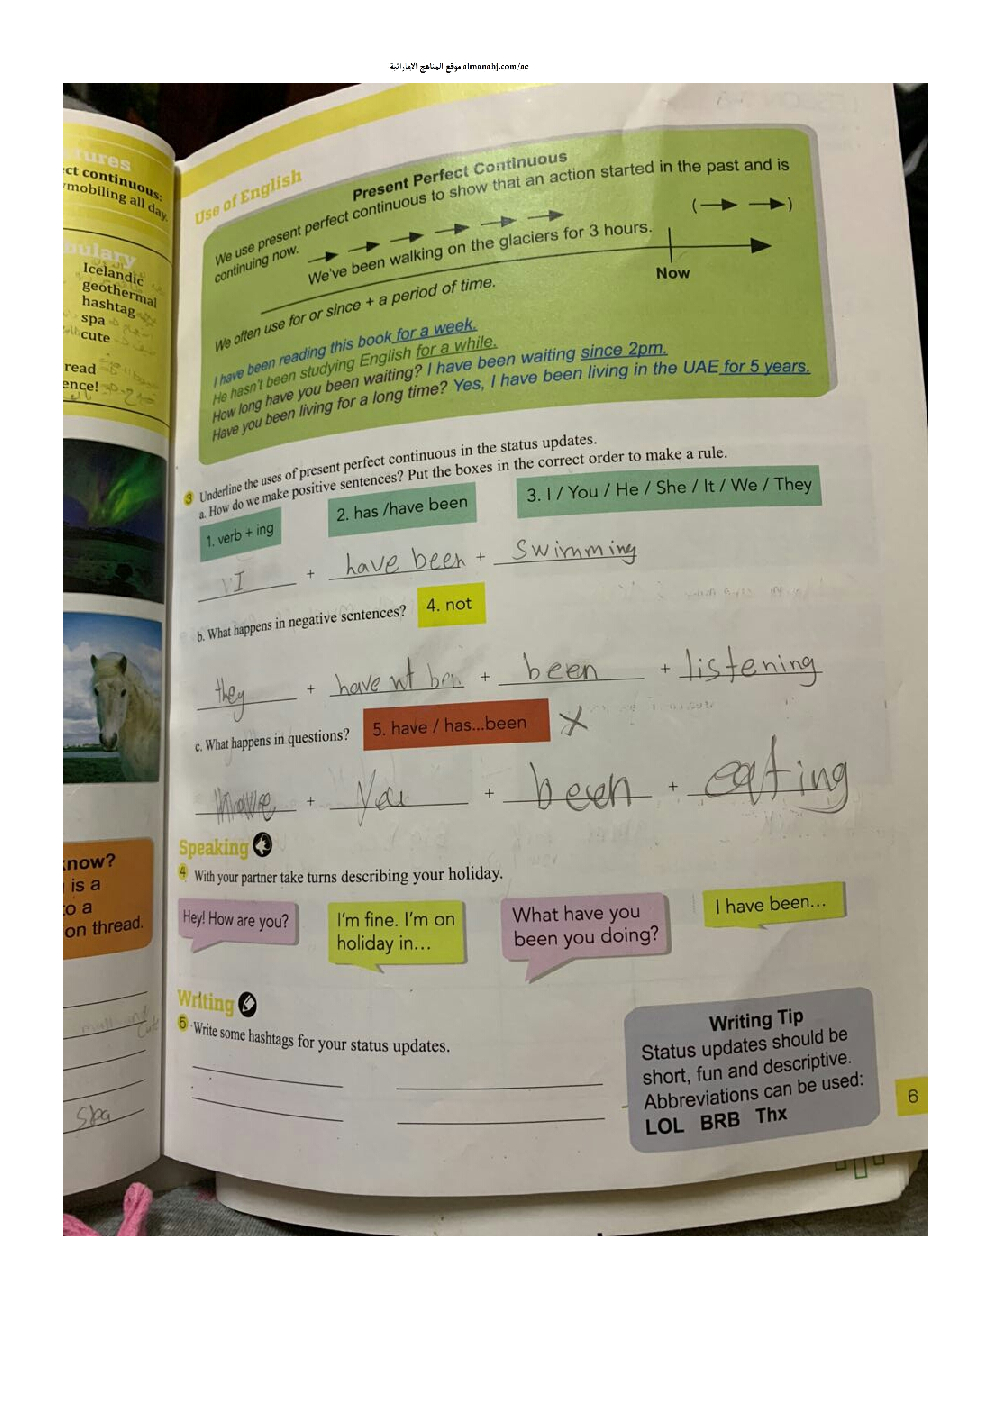 موقع المناهج الإماراتية almanahj.com/ae
tures
ct continuous:
mobiling all day.
bulary
Icelandic
geothermal
hashtag
spa
cute
read
ence!
know?
is a
to a
on thread.
Spa
Use of English
Present Perfect Continuous
We use present perfect continuous to show that an action started in the past and is
continuing now.
We've been walking on the glaciers for 3 hours.
Now
We often use for or since + a period of time.
I have been reading this book for a week.
He hasn't been studying English for a while.
How long have you been waiting? I have been waiting since 2pm.
Have you been living for a long time? Yes, I have been living in the UAE for 5 years.
3 Underline the uses of present perfect continuous in the status updates.
a. How do we make positive sentences? Put the boxes in the correct order to make a rule.
1. verb + ing
2. has /have been
3. I / You / He / She / It / We / They
I + have been + swimming
b. What happens in negative sentences?
4. not
they + have nt + been + listening
c. What happens in questions?
5. have / has...been
X
have + you + been + eating
Speaking
4 With your partner take turns describing your holiday.
Hey! How are you?
I'm fine. I'm on
holiday in...
What have you
been you doing?
I have been...
Writing
5 Write some hashtags for your status updates.
Writing Tip
Status updates should be
short, fun and descriptive.
Abbreviations can be used:
LOL BRB Thx
6